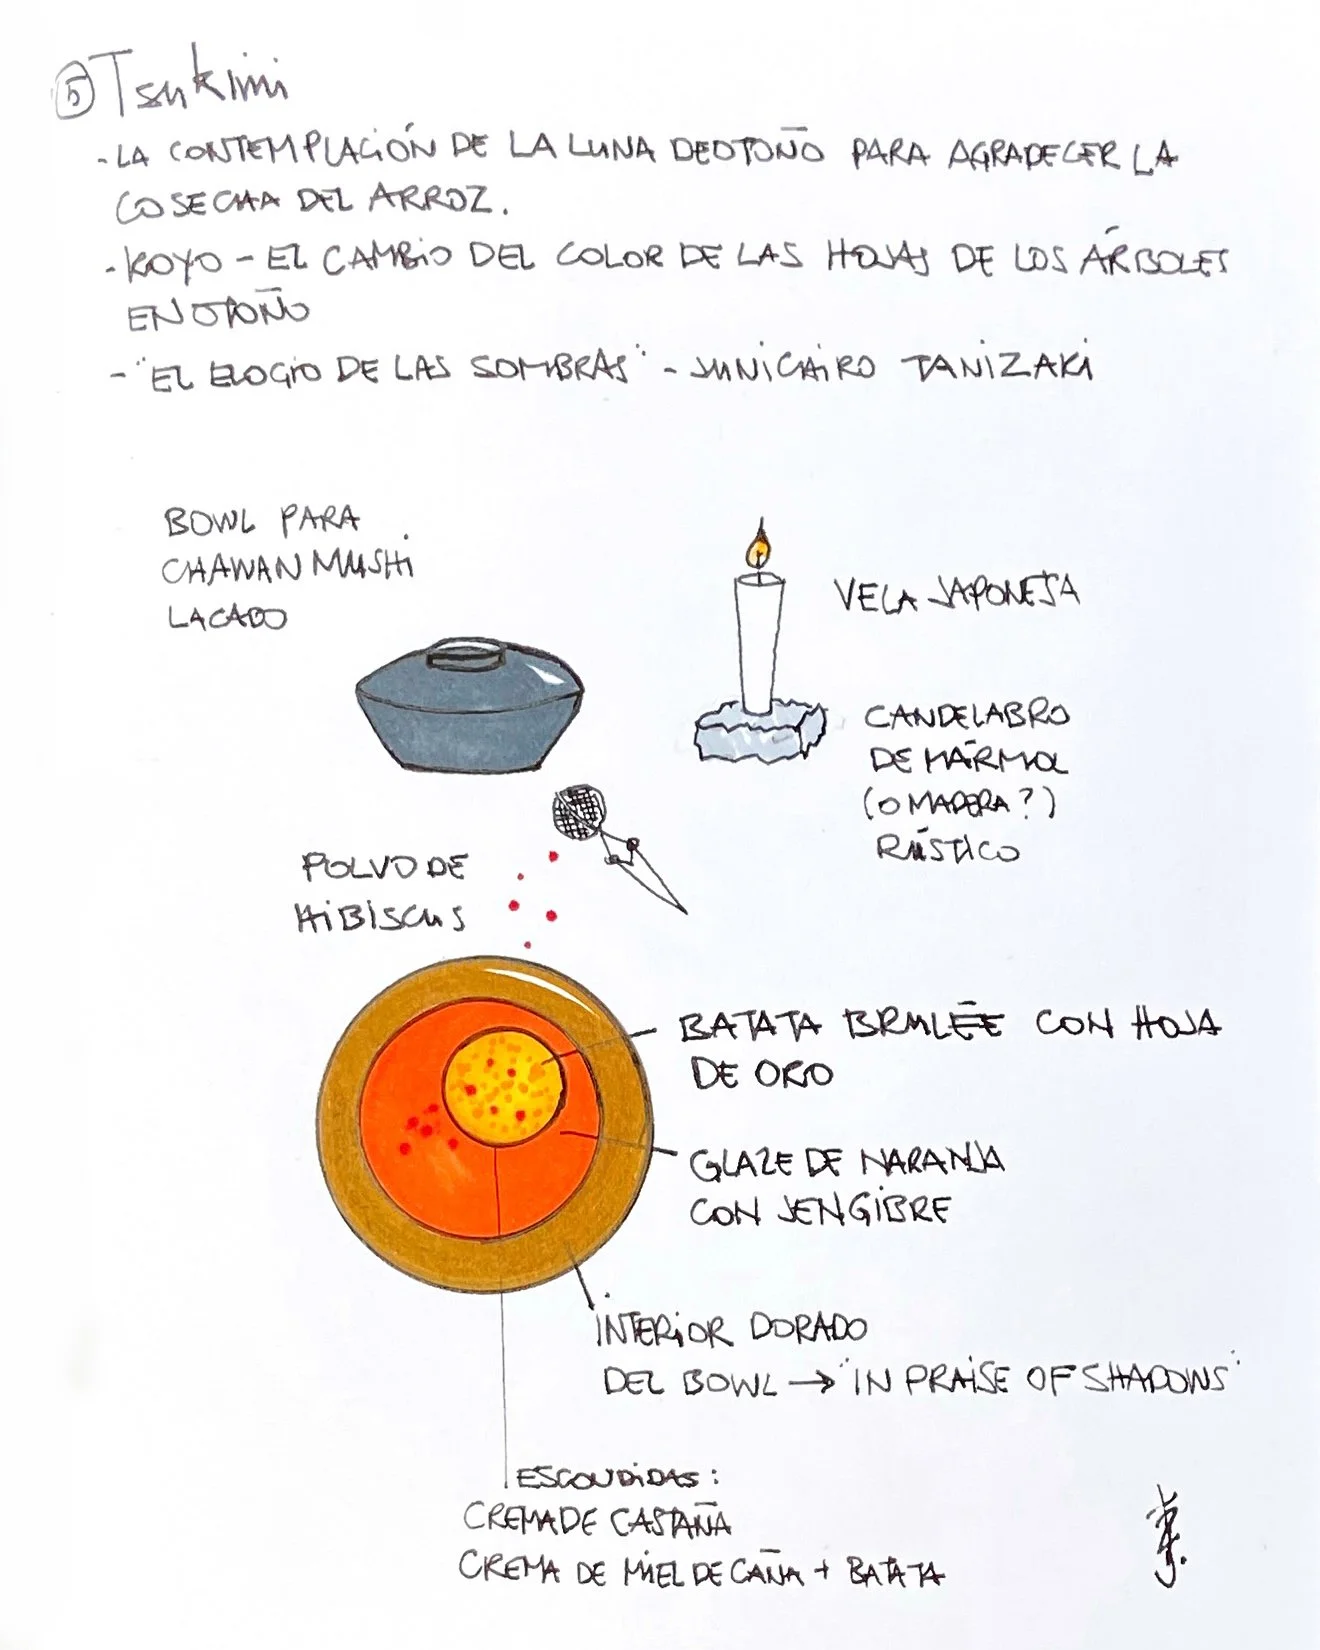 ⑤ Tsukimi
- LA CONTEMPLACIÓN DE LA LUNA DE OTOÑO PARA AGRADECER LA
COSECHA DEL ARROZ.
- KOYO - EL CAMBIO DEL COLOR DE LAS HOJAS DE LOS ÁRBOLES
EN OTOÑO
- "EL ELOGIO DE LAS SOMBRAS" - JUNICHIRO TANIZAKI
BOWL PARA
CHAWAN MUSHI
LACADO
VELA JAPONESA
CANDELABRO
DE MÁRMOL
(O MADERA?)
RÚSTICO
POLVO DE
HIBISCUS
BATATA BRULÉE CON HOJA
DE ORO
GLAZE DE NARANJA
CON JENGIBRE
INTERIOR DORADO
DEL BOWL → "IN PRAISE OF SHADOWS"
ESCONDIDAS:
CREMA DE CASTAÑA
CREMA DE MIEL DE CAÑA + BATATA